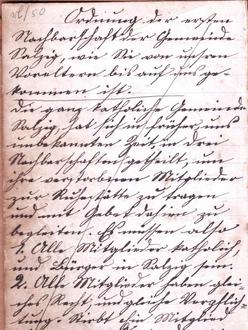 Ordnung der ersten
Nachbarschaft der Gemeinde
Salzig, wie Sie von unsren
Voreltern bis auf uns ge-
kommen ist.
Die ganz katholische Gemeinde
Salzig hat sich in früher, uns
unbekannten Zeit, in drei
Nachbarschaften getheilt, um
ihre verstorbenen Mitglieder
zur Ruhestätte zu tragen
und mit Gebet dahin zu
begleiten. Es müssen also
1. Alle Mitglieder katholisch,
und Bürger in Salzig sein.
2. Alle Mitglieder haben glei-
ches Recht, und gleiche Verpflich-
tung. Stirbt ein Mitglied